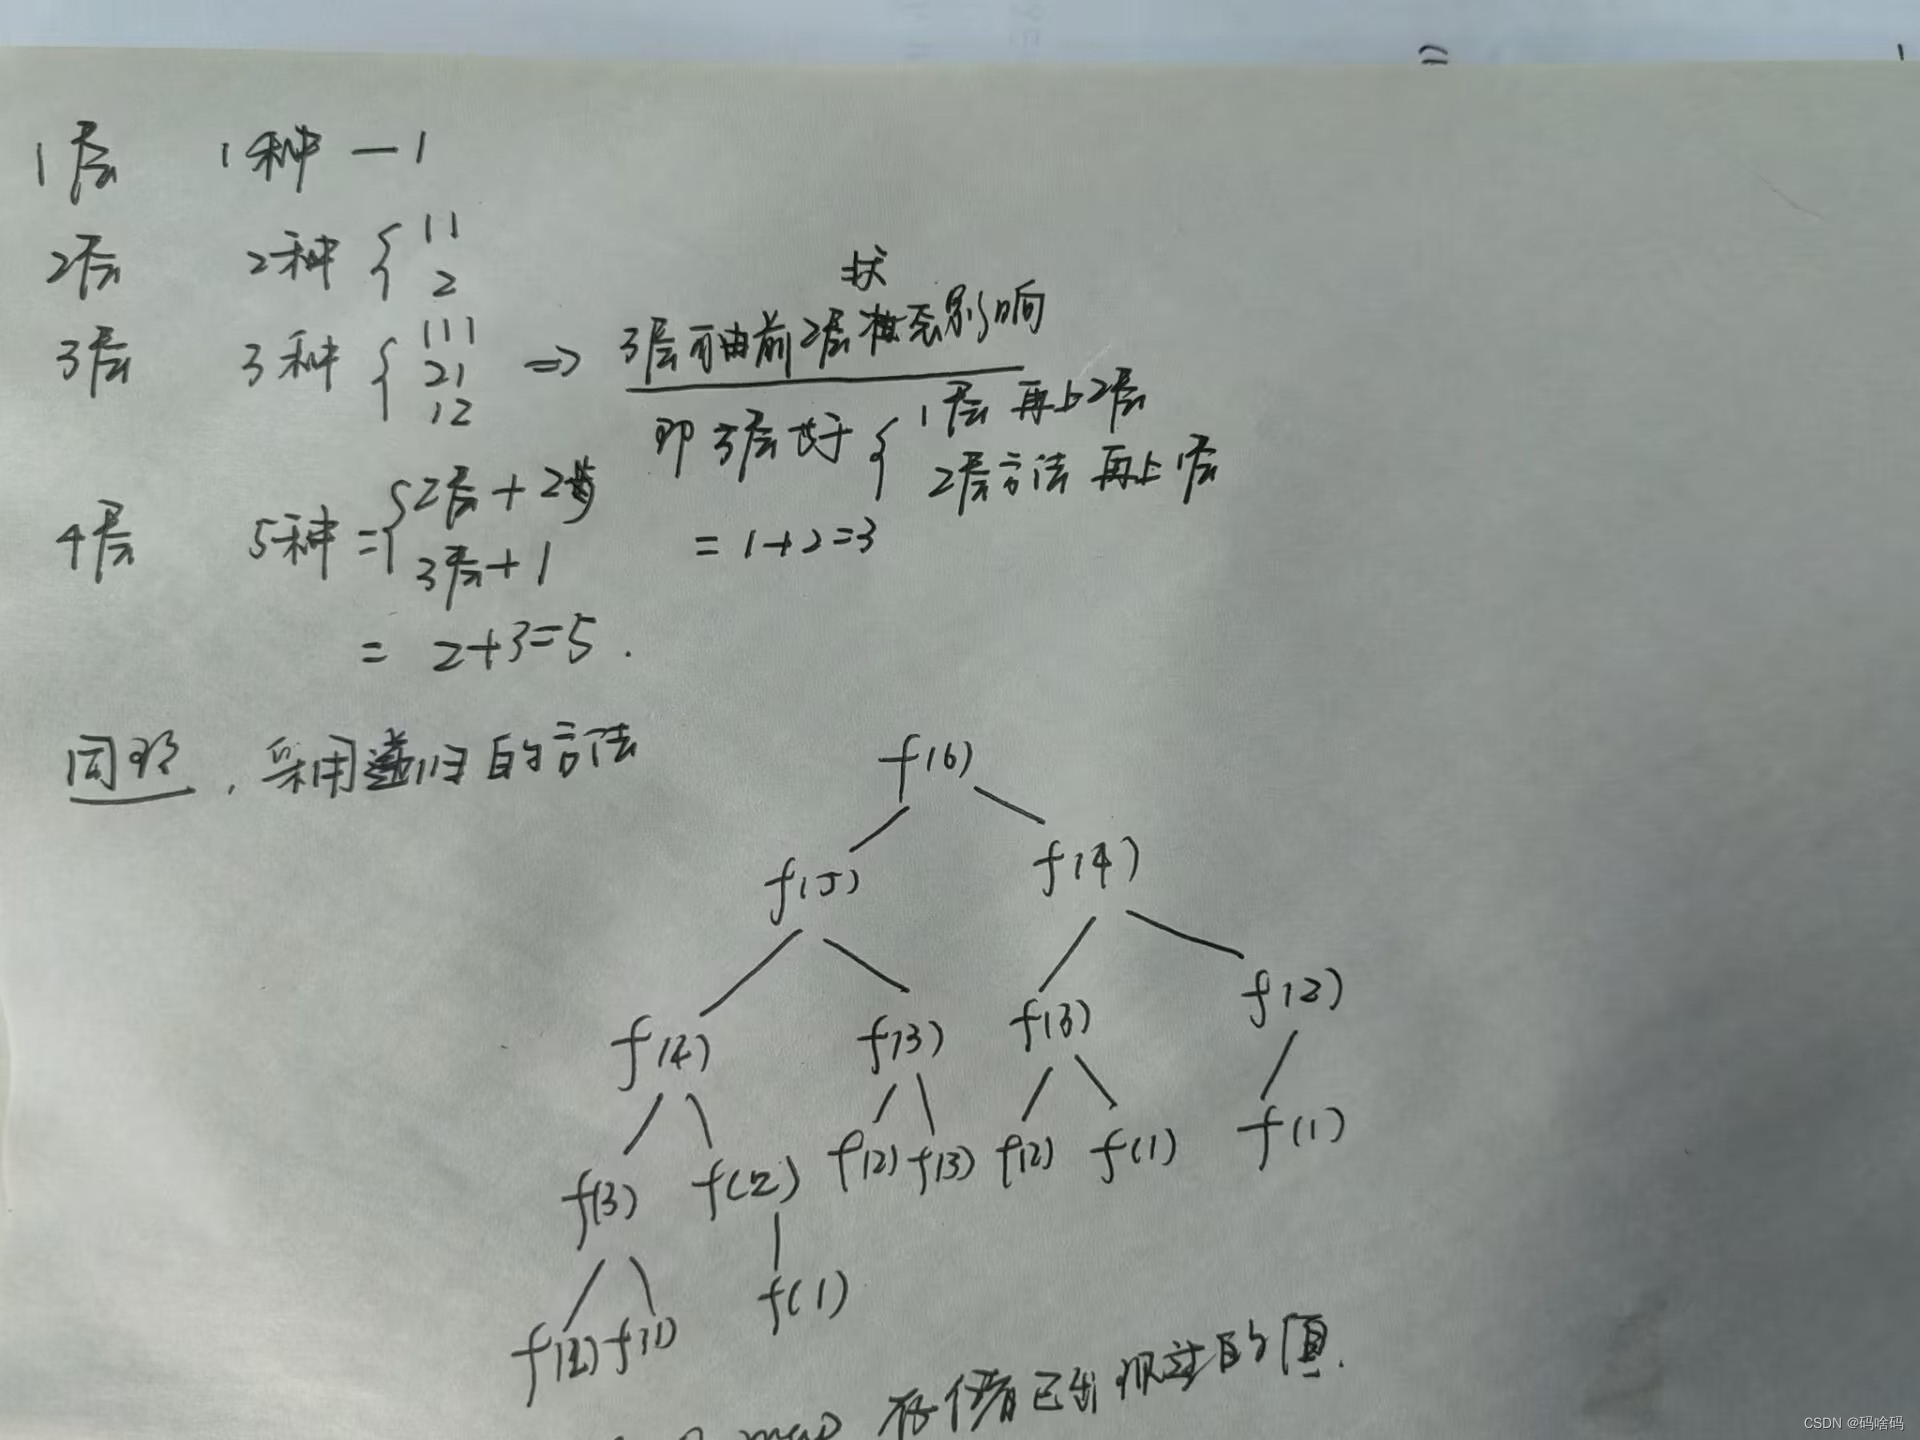 1层 1种 — 1
2层 2种 { 11
2
3层 3种 { 111
21
12
⇒ 3层可由前2层状态影响
即3层等于 { 1层 再上2层
2层方法 再上1层
= 1+2=3
4层 5种 = { 2层+2步
3层+1
= 2+3=5.
同理, 采用递归的方法
f(6)
f(5) f(4)
f(4) f(3) f(3) f(2)
f(3) f(2) f(2) f(3) f(2) f(1) f(1)
f(2) f(1) f(1)
map 存储已出现过的值.
CSDN @码啥码